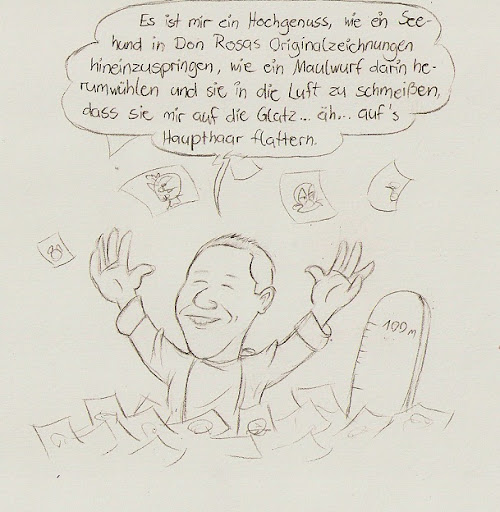 Es ist mir ein Hochgenuss, wie ein See-
hund in Don Rosas Originalzeichnungen
hineinzuspringen, wie ein Maulwurf darin he-
rumwühlen und sie in die Luft zu schmeißen,
dass sie mir auf die Glatz... äh... auf's
Haupthaar flattern.
100m